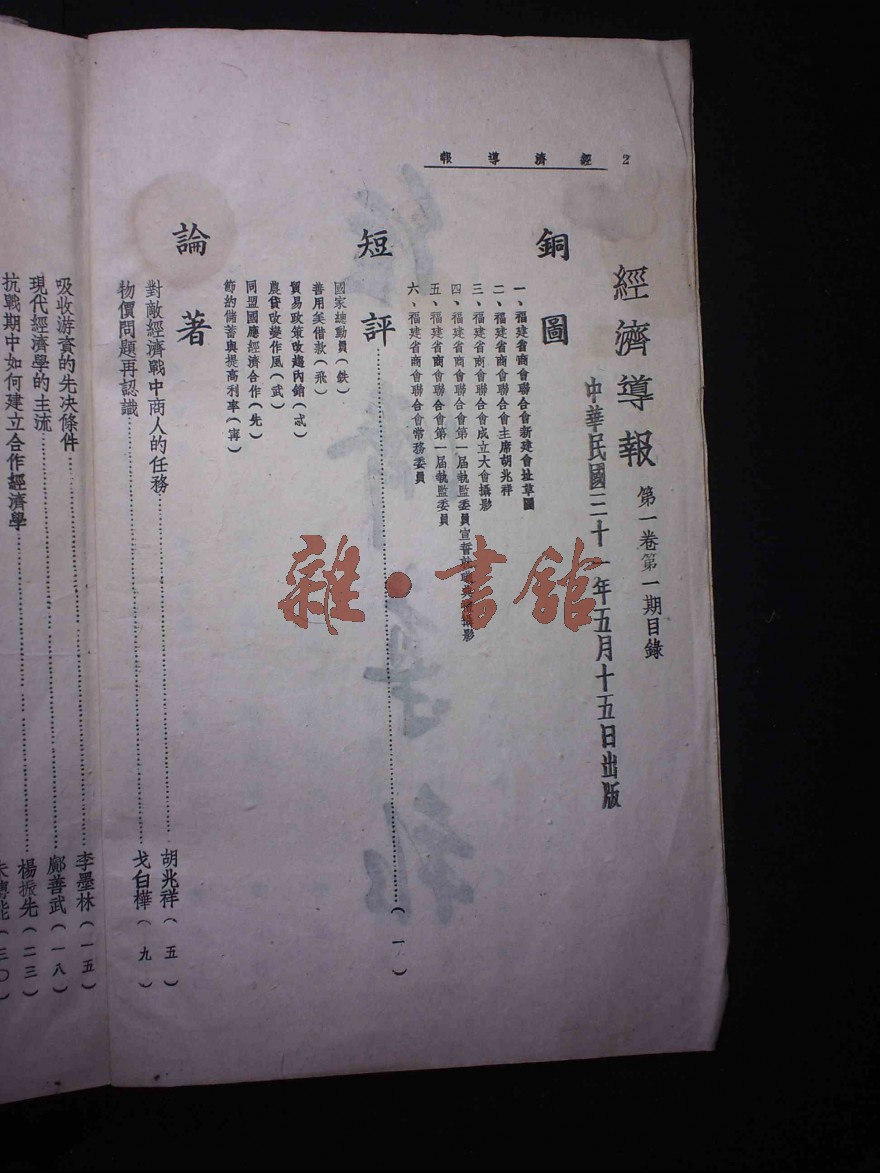 2 經濟導報
經濟導報 第一卷第一期目錄
中華民國三十一年五月十五日出版
銅圖
一、福建省商會聯合會新建會址草圖
二、福建省商會聯合會主席胡兆祥
三、福建省商會聯合會成立大會攝影
四、福建省商會聯合會第一屆執監委員宣誓 攝影
五、福建省商會聯合會第一屆執監委員
六、福建省商會聯合會常務委員
短評……(一)
國家總動員(鉄)
善用美借款(飛)
貿易政策改趨內銷(貳)
農貸改變作風(武)
同盟國應經濟合作(先)
節約儲蓄與提高利率(甯)
論著
對敵經濟戰中商人的任務……胡兆祥(五)
物價問題再認識……戈白樺(九)
吸收游資的先決條件……李墨林(一五)
現代經濟學的主流……鄺善武(一八)
抗戰期中如何建立合作經濟學……楊振先(二三)
(三〇)
雜·書館